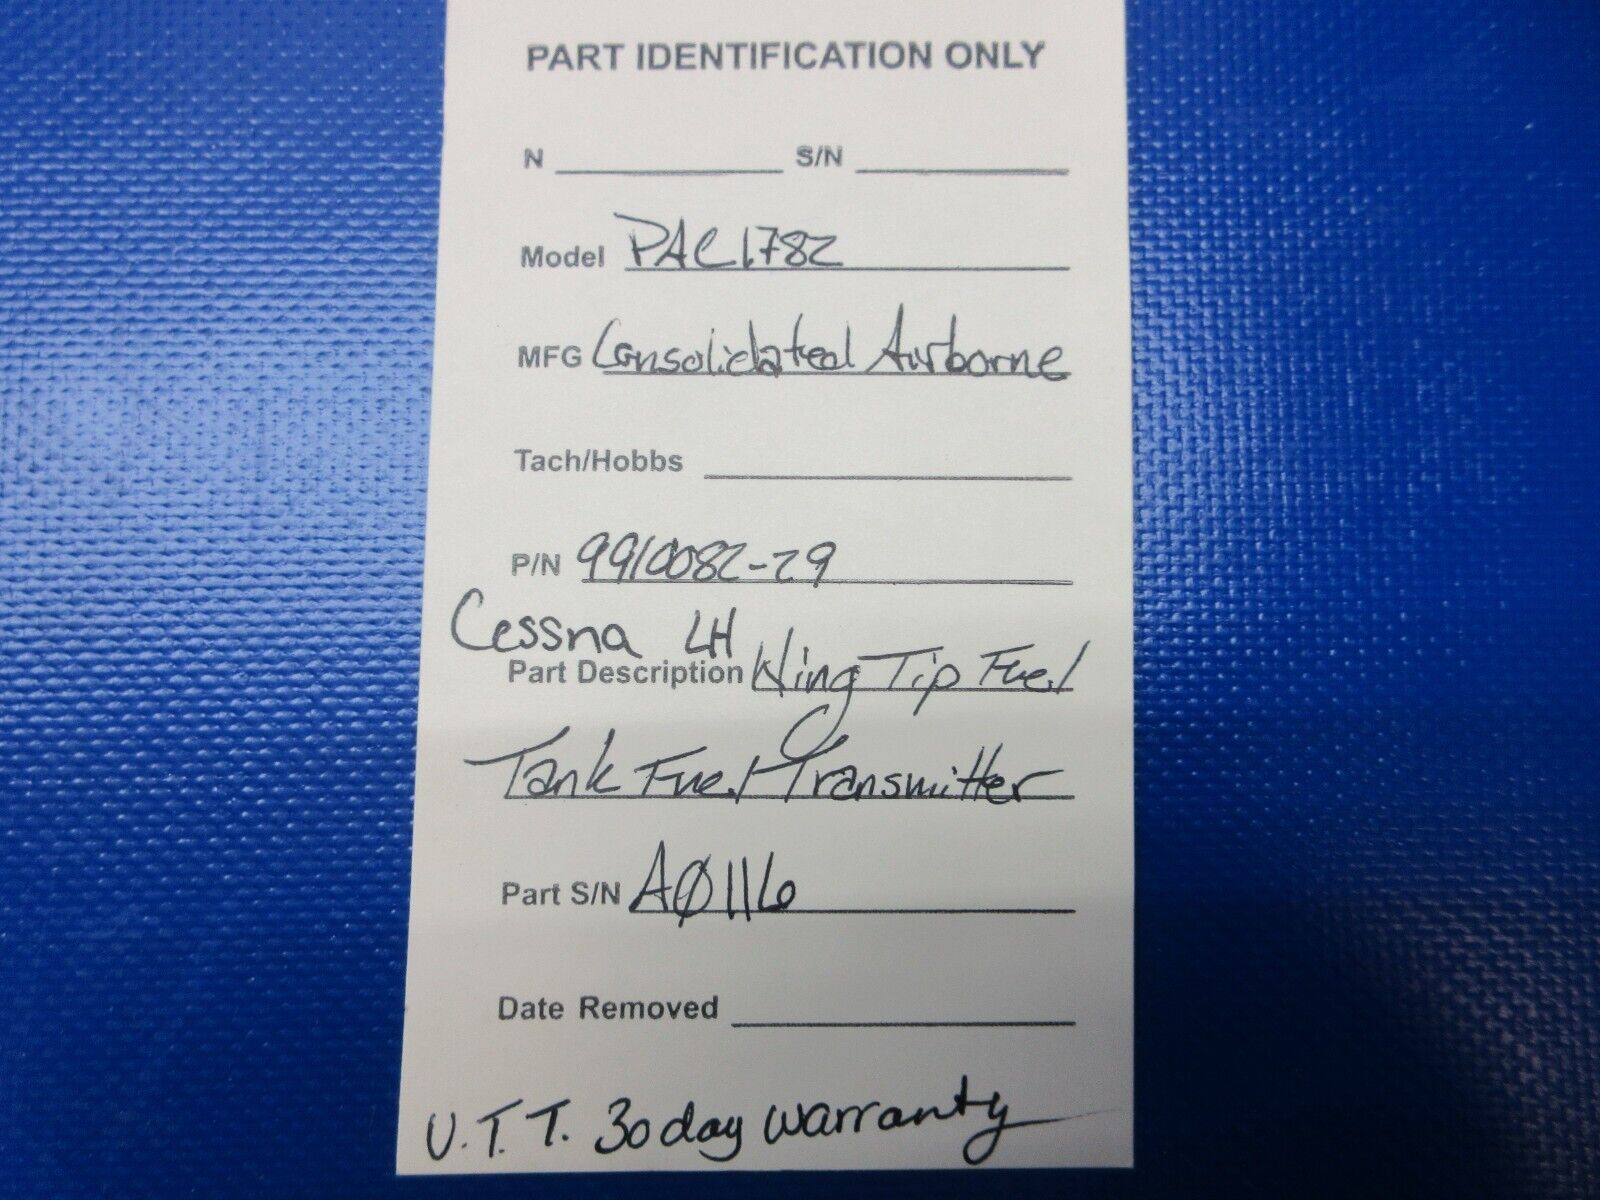 PART IDENTIFICATION ONLY
N S/N
Model PAC1782
MFG Consolidated Airborne
Tach/Hobbs
P/N 9910082-29
Cessna LH
Part Description Wing Tip Fuel
Tank Fuel Transmitter
Part S/N AØ116
Date Removed
U.T.T. 30 day warranty